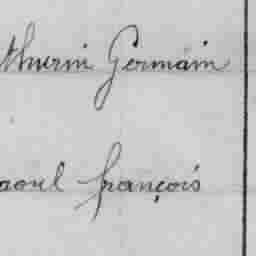 thurin Germain
aoul françois